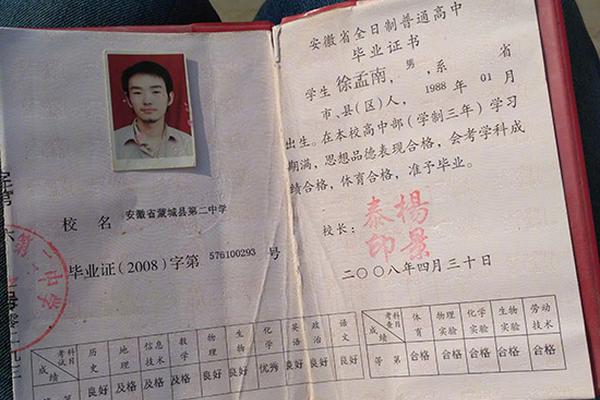 校 名 安徽省蒙城县第二中学
毕业证(2008)字第 576100293 号
第二中学
考试科目 历史 地理 信息技术 数学 物理 生物 化学 英语 政治 语文
成绩 良好 及格 及格 及格 良好 良好 优秀 良好 良好 良好
安徽省全日制普通高中
毕业证书
学生 徐孟南,男,系 省
市、县(区)人, 1988 年 01 月
出生。在本校高中部(学制三年)学习
期满,思想品德表现合格,会考学科成
绩合格,体育合格,准予毕业。
校长: 杨景泰印
二〇〇八年四月三十日
考查科目 体育 物理实验 化学实验 生物实验 劳动技术
成绩 等第 合格 合格 合格 合格 合格